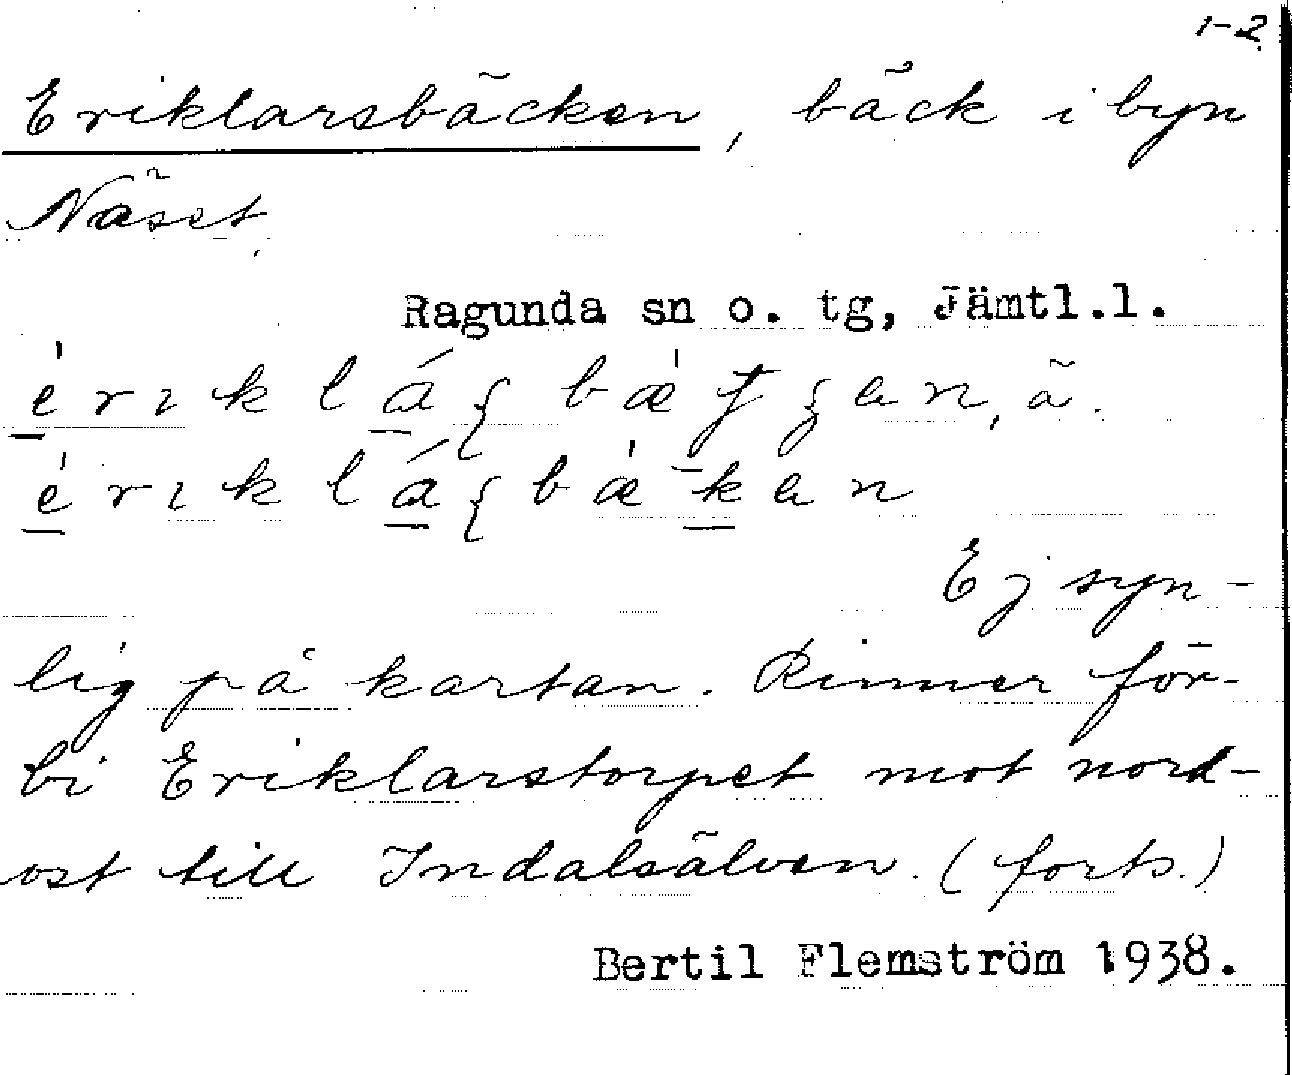 1-2.
Eriklarsbäcken, bäck i byn
Näset.
Ragunda sn o. tg, Jämtl.l.
lig på kartan. Rinner för-
bi Eriklarstorpet mot nord-
ost till Indalsälven. (forts.)
Bertil Flemström 1938.